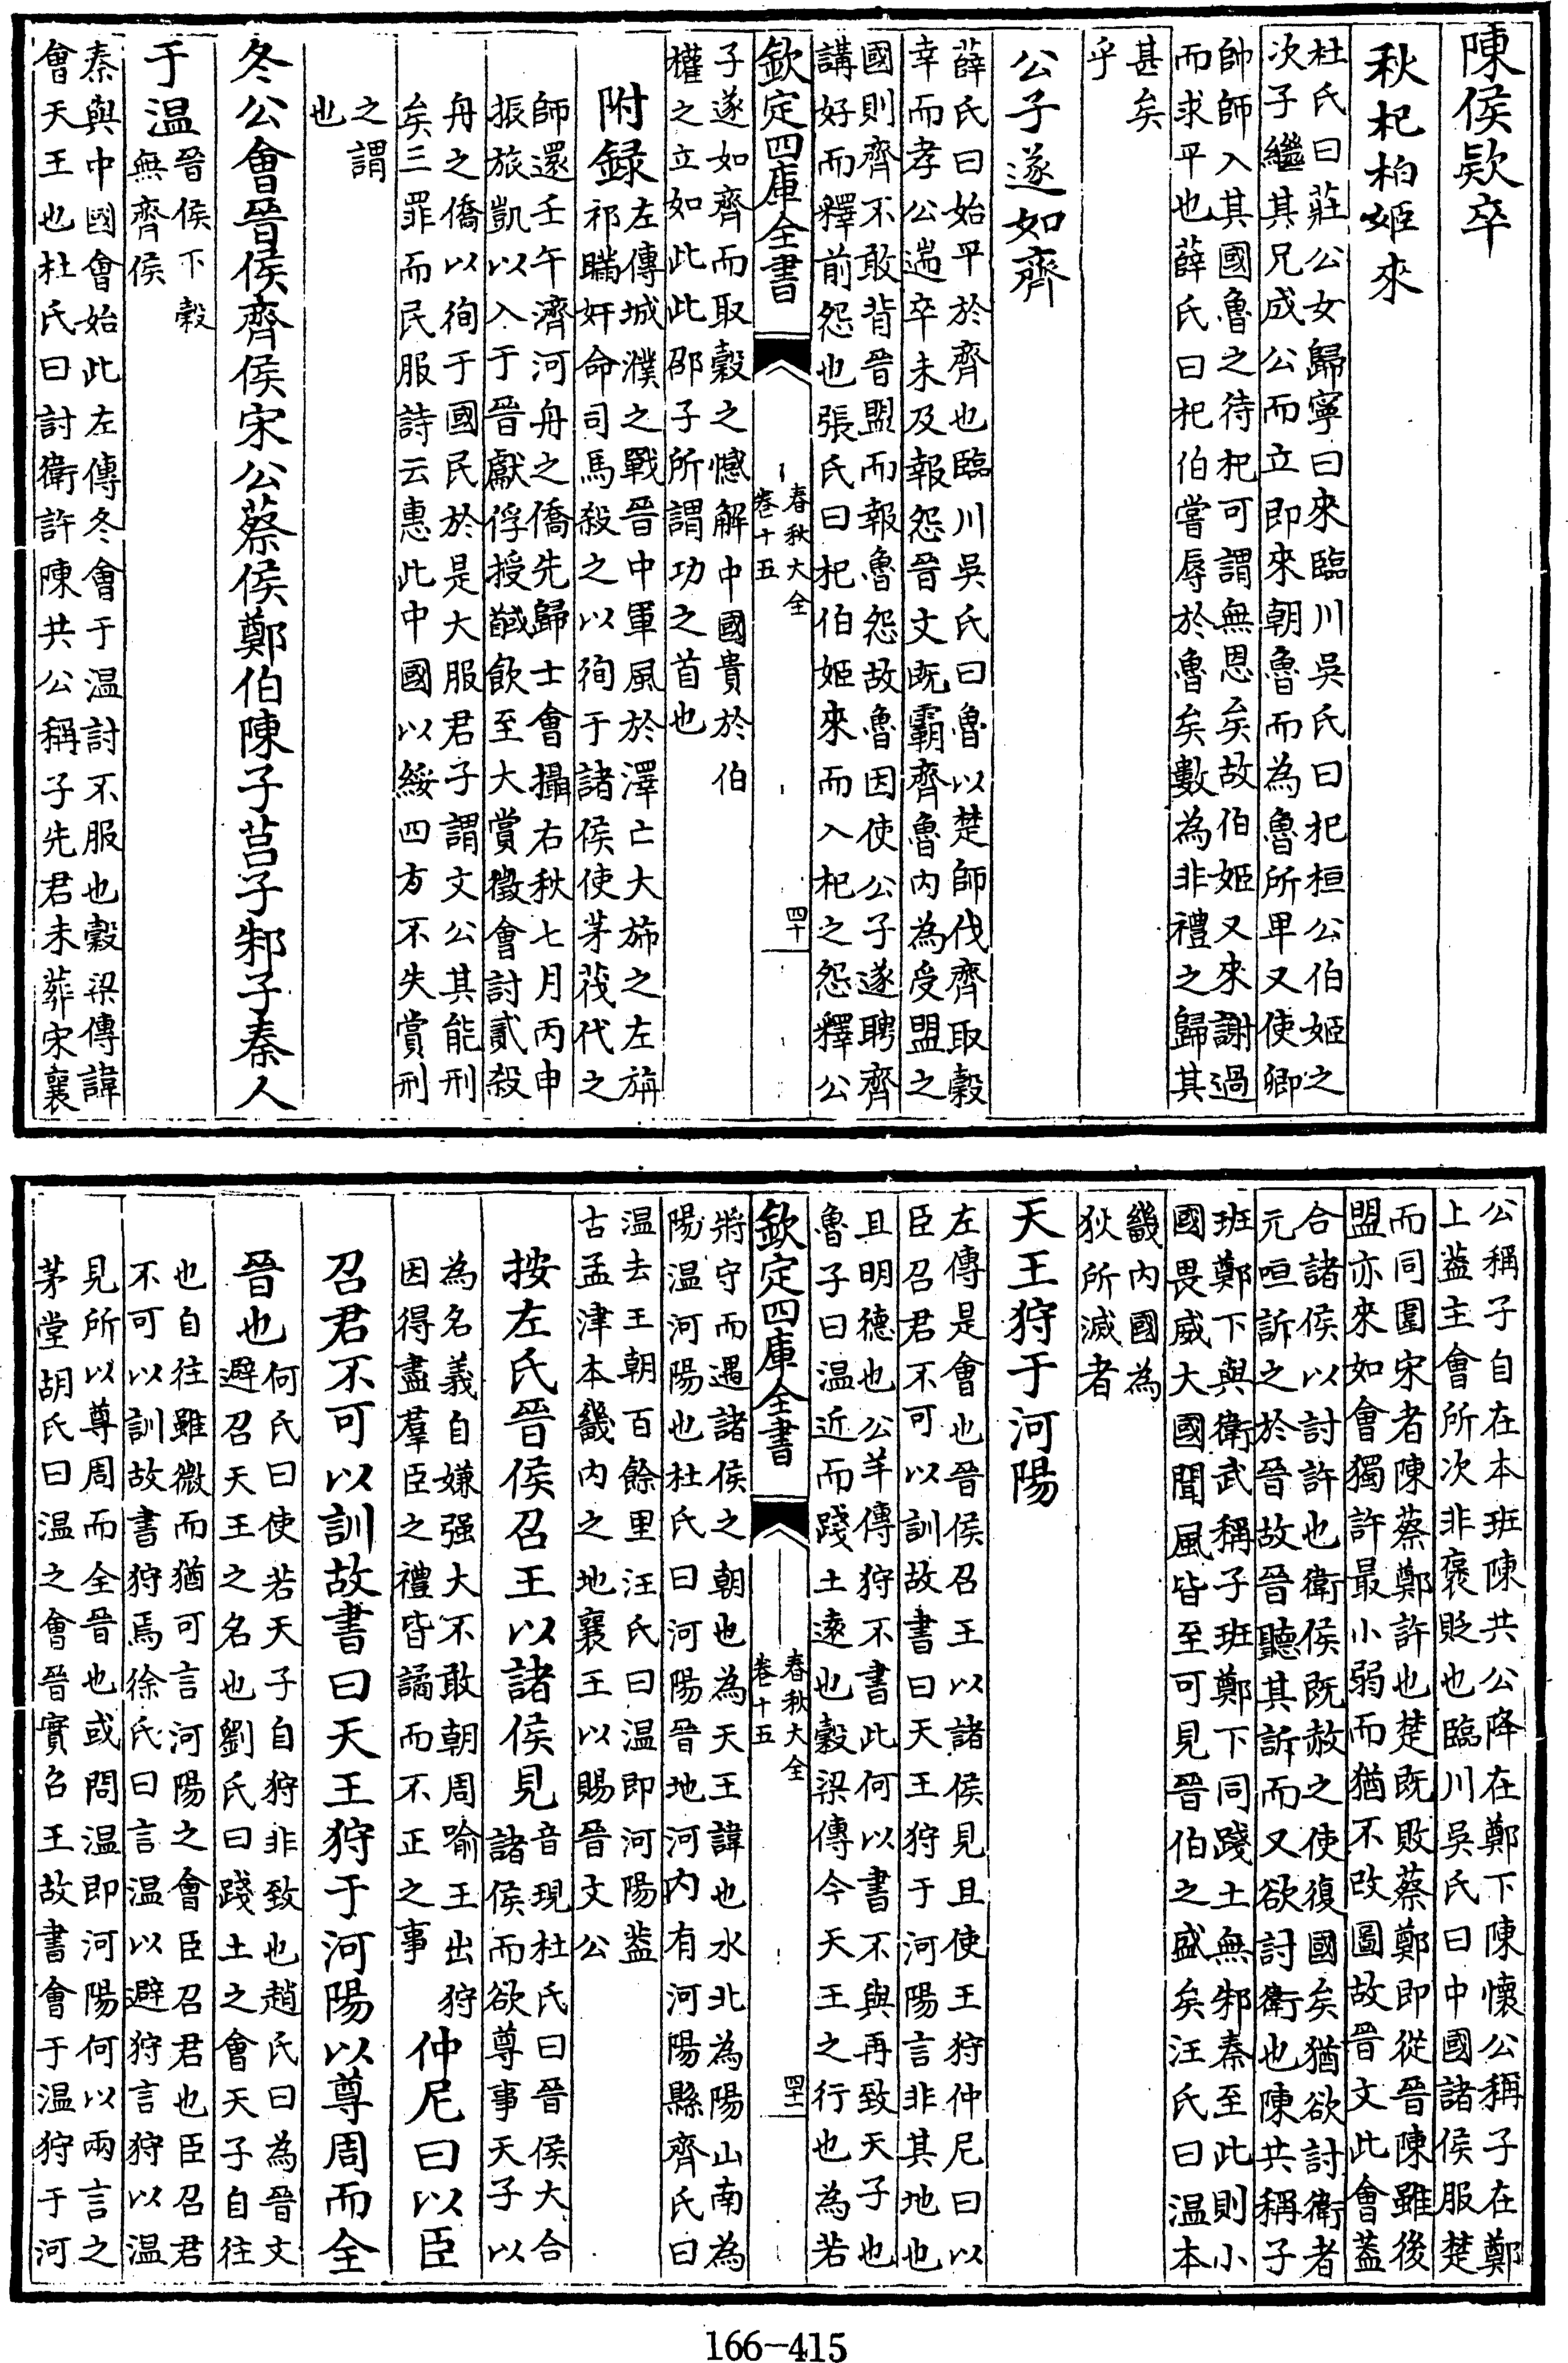 陳侯款卒
秋杞柏姬來
杜氏曰莊公女歸寧曰來臨川吳氏曰杞桓公伯姬之
次子繼其兄成公而立即來朝魯而為魯所卑又使卿
帥師入其國魯之待杞可謂無恩矣故伯姬又來謝過
而求平也薛氏曰杞伯嘗辱於魯矣數為非禮之歸其
甚矣
乎
公子遂如齊
薛氏曰始平於齊也臨川吳氏曰魯以楚師伐齊取穀
幸而孝公遄卒未及報怨晉文既霸齊魯內為受盟之
國則齊不敢背晉盟而報魯怨故魯因使公子遂聘齊
講好而釋前怨也張氏曰杞伯姬來而入杞之怨釋公
欽定四庫全書
春秋大全
卷十五
四十
子遂如齊而取穀之憾解中國貴於伯
權之立如此此邵子所謂功之首也
附録
左傳城濮之戰晉中軍風於澤亡大斾之左旃
祁瞞奸命司馬殺之以徇于諸侯使茅茷代之
師還壬午濟河舟之僑先歸士會攝右秋七月丙申
振旅凱以入于晉獻俘授馘飲至大賞徵會討貳殺
舟之僑以徇于國民於是大服君子謂文公其能刑
矣三罪而民服詩云惠此中國以綏四方不失賞刑
之謂
也
冬公會晉侯齊侯宋公蔡侯鄭伯陳子莒子邾子秦人
于温
晉侯下穀
無齊侯
秦與中國會始此左傳冬會于温討不服也穀梁傳諱
會天王也杜氏曰討衛許陳共公稱子先君未葬宋襄
公稱子自在本班陳共公降在鄭下陳懷公稱子在鄭
上葢主會所次非褒貶也臨川吳氏曰中國諸侯服楚
而同圍宋者陳蔡鄭許也楚既敗蔡鄭即從晉陳雖後
盟亦來如會獨許最小弱而猶不改圖故晉文此會葢
合諸侯以討許也衛侯既赦之使復國矣猶欲討衛者
元咺訴之於晉故晉聽其訴而又欲討衛也陳共稱子
班鄭下與衛武稱子班鄭下同踐土無邾秦至此則小
國畏威大國聞風皆至可見晉伯之盛矣汪氏曰温本
畿內國為
狄所滅者
天王狩于河陽
左傳是會也晉侯召王以諸侯見且使王狩仲尼曰以
臣召君不可以訓故書曰天王狩于河陽言非其地也
且明德也公羊傳狩不書此何以書不與再致天子也
魯子曰温近而踐土遠也穀梁傳今天王之行也為若
欽定四庫全書
春秋大全
卷十五
四十一
將守而遇諸侯之朝也為天王諱也水北為陽山南為
陽温河陽也杜氏曰河陽晉地河內有河陽縣齊氏曰
温去王朝百餘里汪氏曰温即河陽葢
古孟津本畿內之地襄王以賜晉文公
按左氏晉侯召王以諸侯見
音現杜氏曰晉侯大合
諸侯而欲尊事天子以
為名義自嫌强大不敢朝周喻王出狩
因得盡羣臣之禮皆譎而不正之事
仲尼曰以臣
召君不可以訓故書曰天王狩于河陽以尊周而全
晉也
何氏曰使若天子自狩非致也趙氏曰為晉文
避召天王之名也劉氏曰踐土之會天子自往
也自往雖微而猶可言河陽之會臣召君也臣召君
不可以訓故書狩焉徐氏曰言温以避狩言狩以温
見所以尊周而全晉也或問温即河陽何以兩言之
茅堂胡氏曰温之會晉實召王故書會于温狩于河
166-415